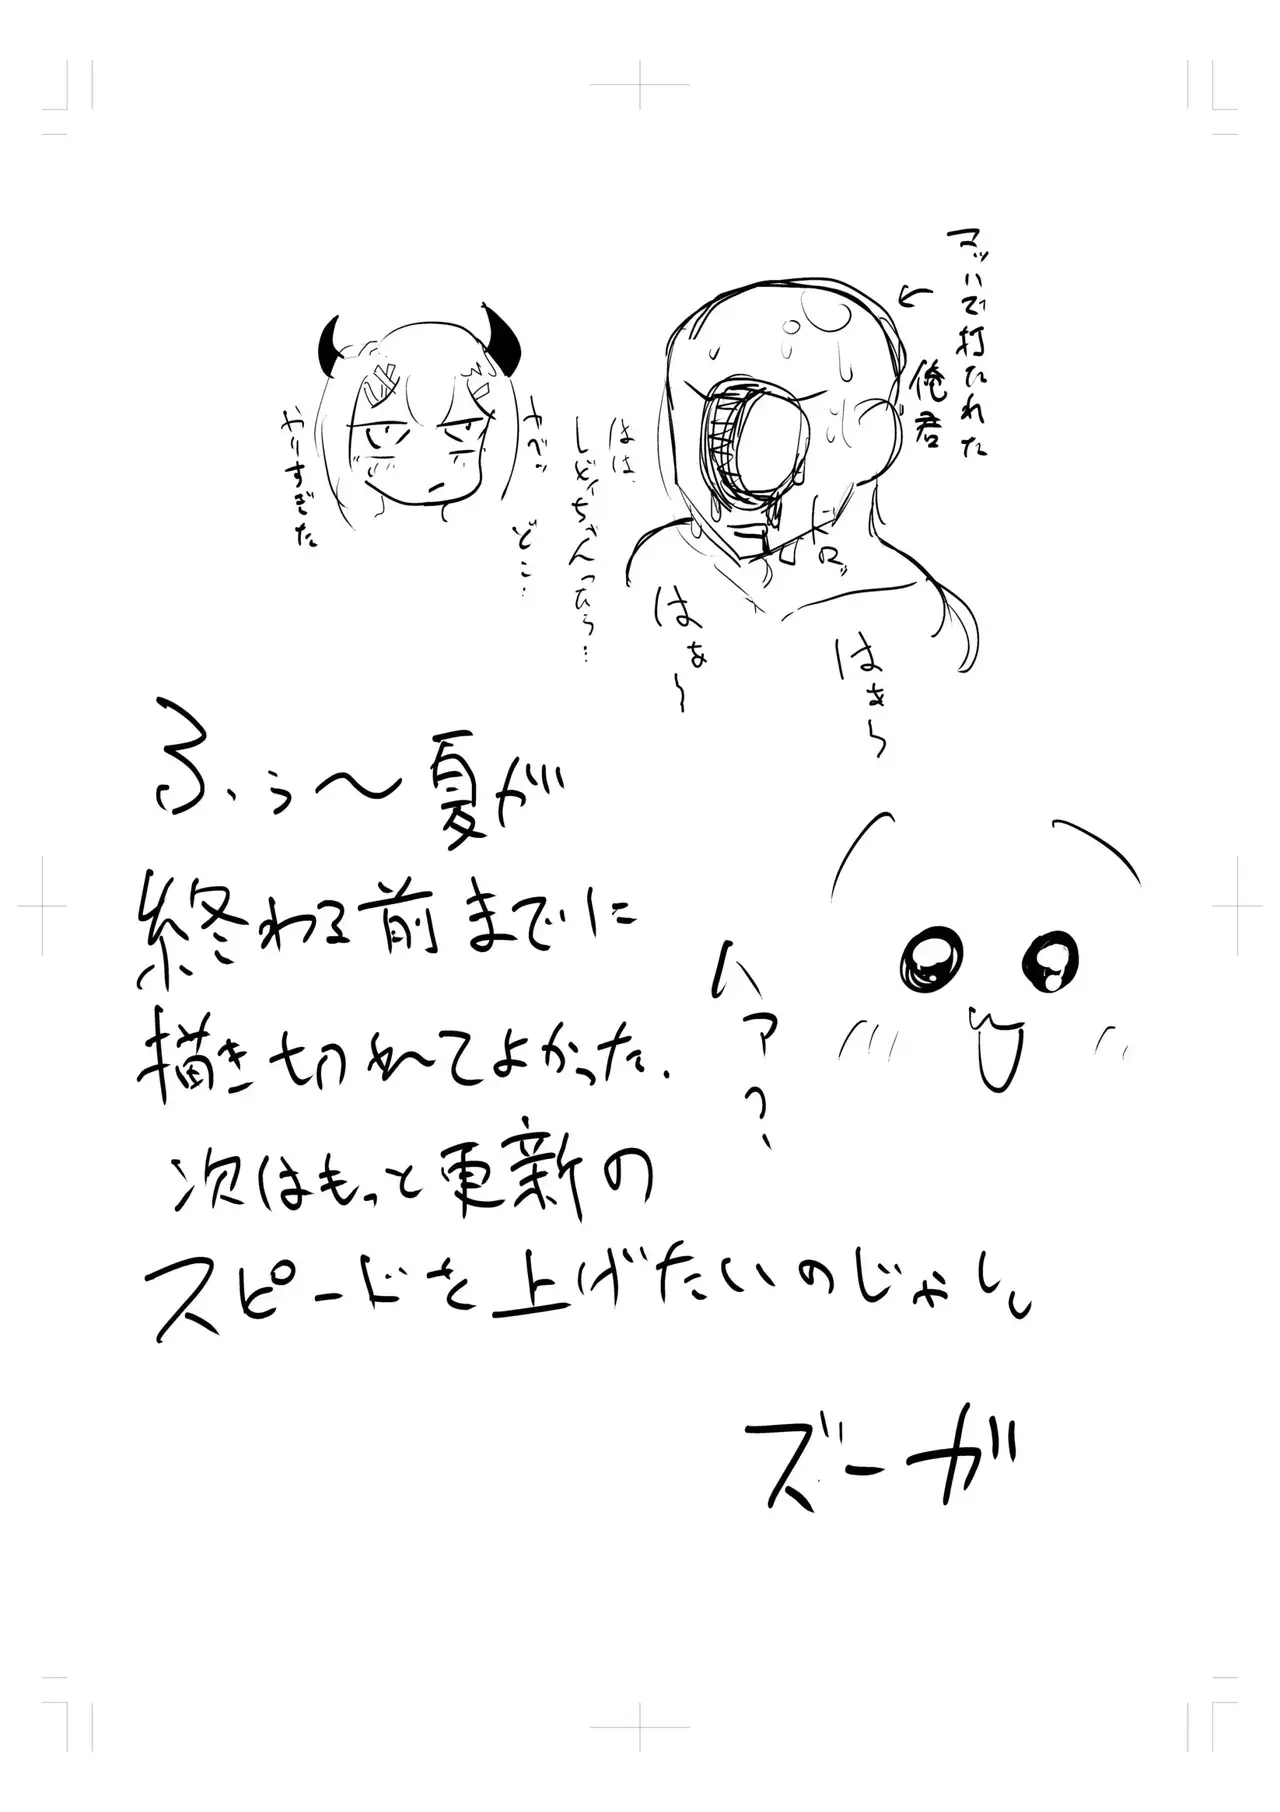 マッハで打たれた
俺君
はは、
しどぃちゃんったら…
ヤベッ
どこ…
やりすぎた
ドロッ
はぁ〜
はぁ〜
ふぅ〜夏が
終わる前までに
描き切れてよかった、
ハァっ、
次はもっと更新の
スピードを上げたいのじゃし。
ズーガ